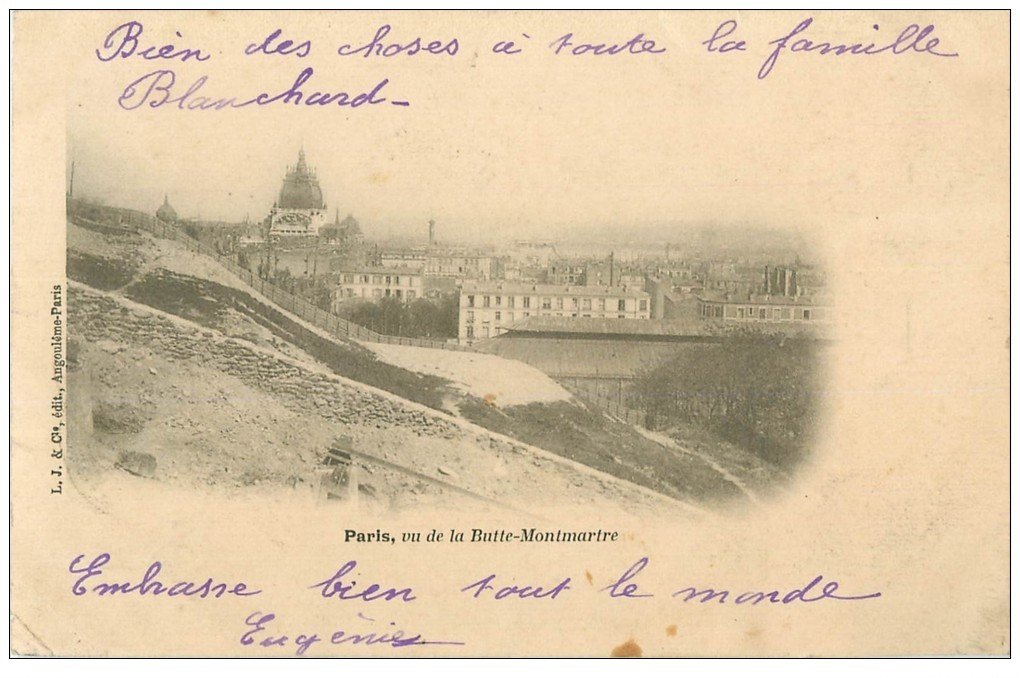 Bien des choses à toute la famille
Blanchard_
L. J. & Cie, édit., Angoulême-Paris
Paris, vu de la Butte-Montmartre
Embrasse bien tout le monde
Eugénie